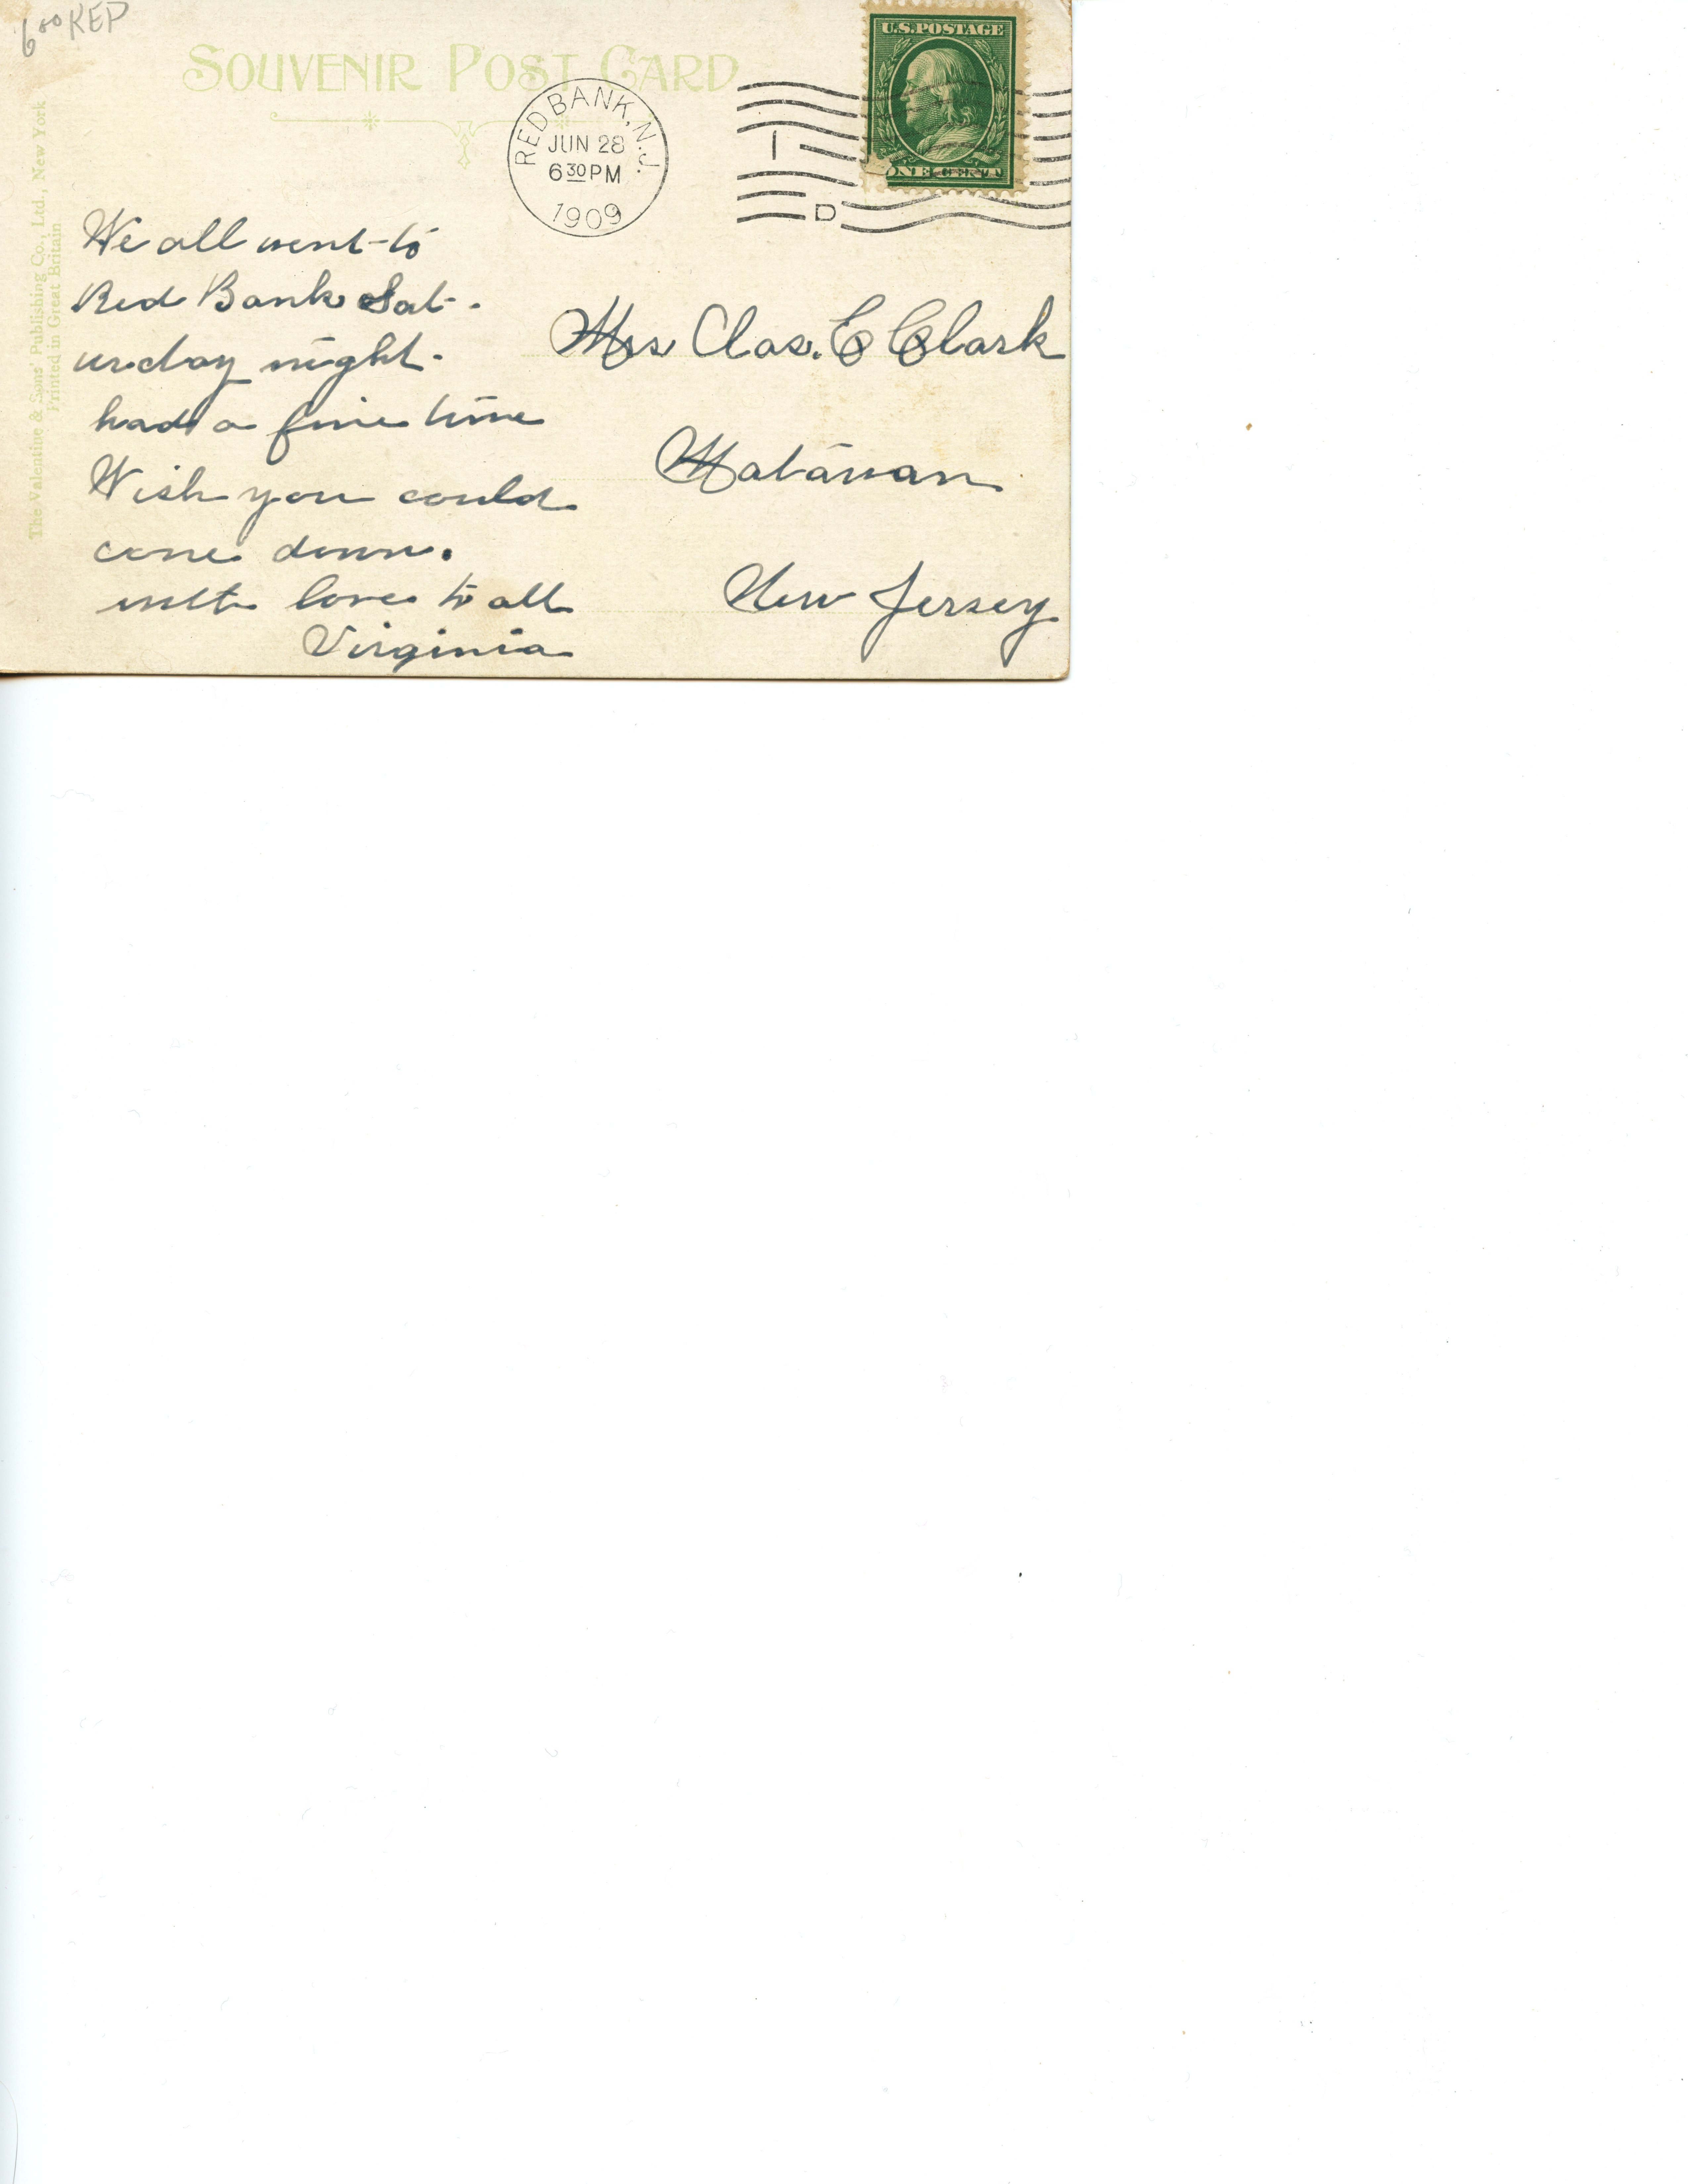 6 00 KEP
SOUVENIR POST CARD
U.S. POSTAGE
ONE CENT
RED BANK, N.J.
JUN 28
6 30 PM
1909
1
D
The Valentine & Sons' Publishing Co., Ltd., New York
Printed in Great Britain
We all went to
Red Bank Sat-
urday night.
had a fine time
Wish you could
come down.
with love to all
Virginia
Mrs Chas. E Clark
Matawan
New Jersey